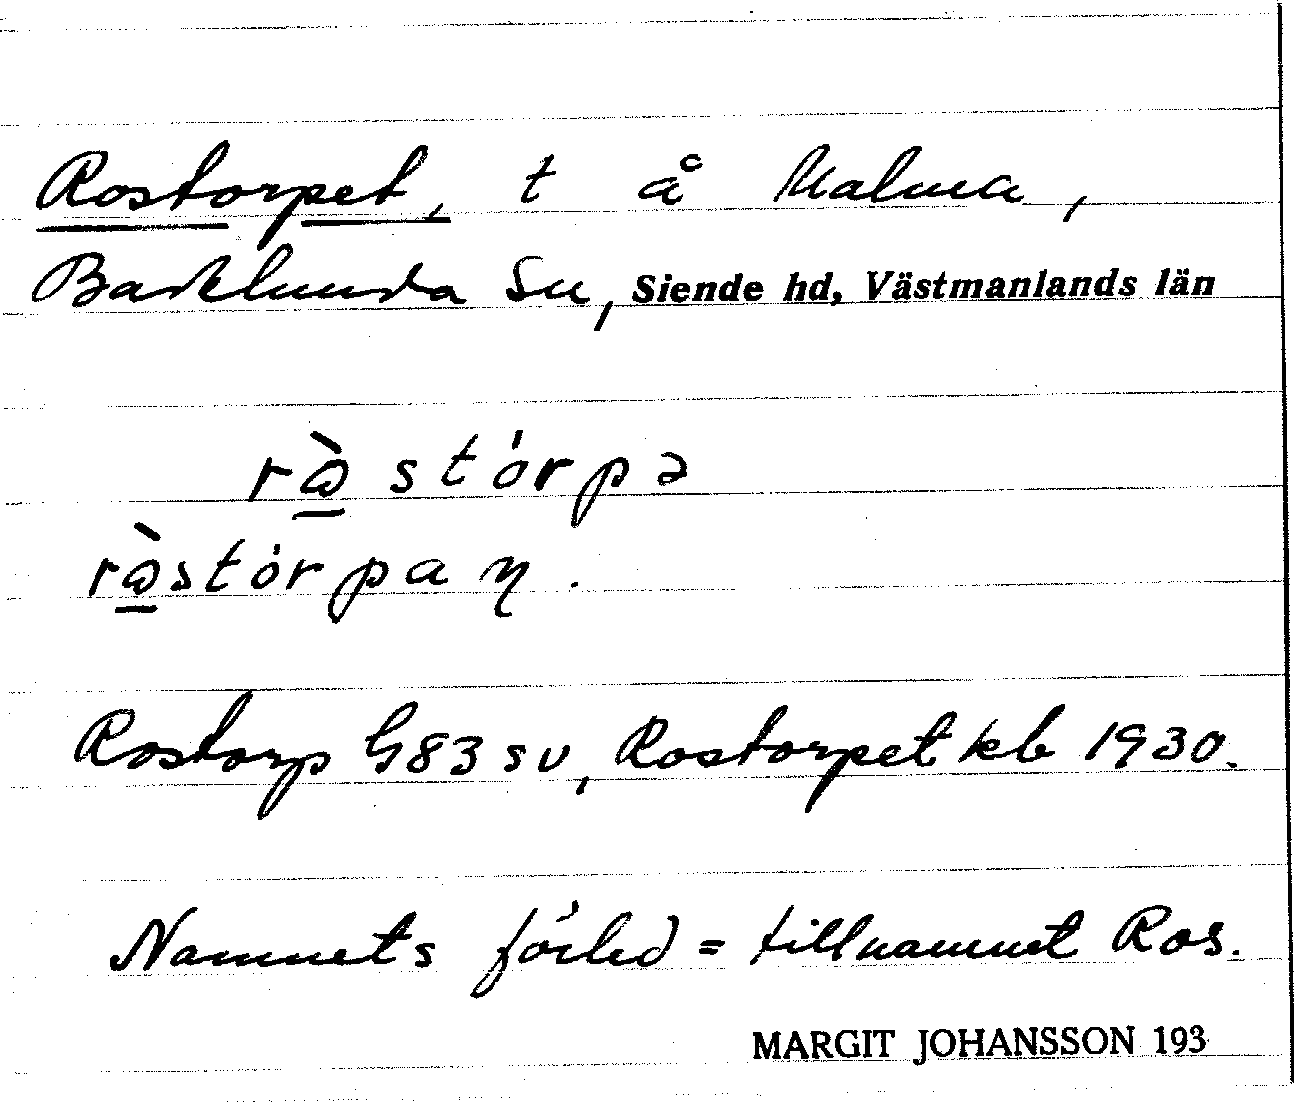 Rostorpet, t å Malma,
Barklunda Sn, Siende hd, Västmanlands län
rò̱stórpə
rò̱stórpaŋ.
Rostorp G83 sv, Rostorpet kb 1930.
Namnets förled = tillnamnet Ros.
MARGIT JOHANSSON 193